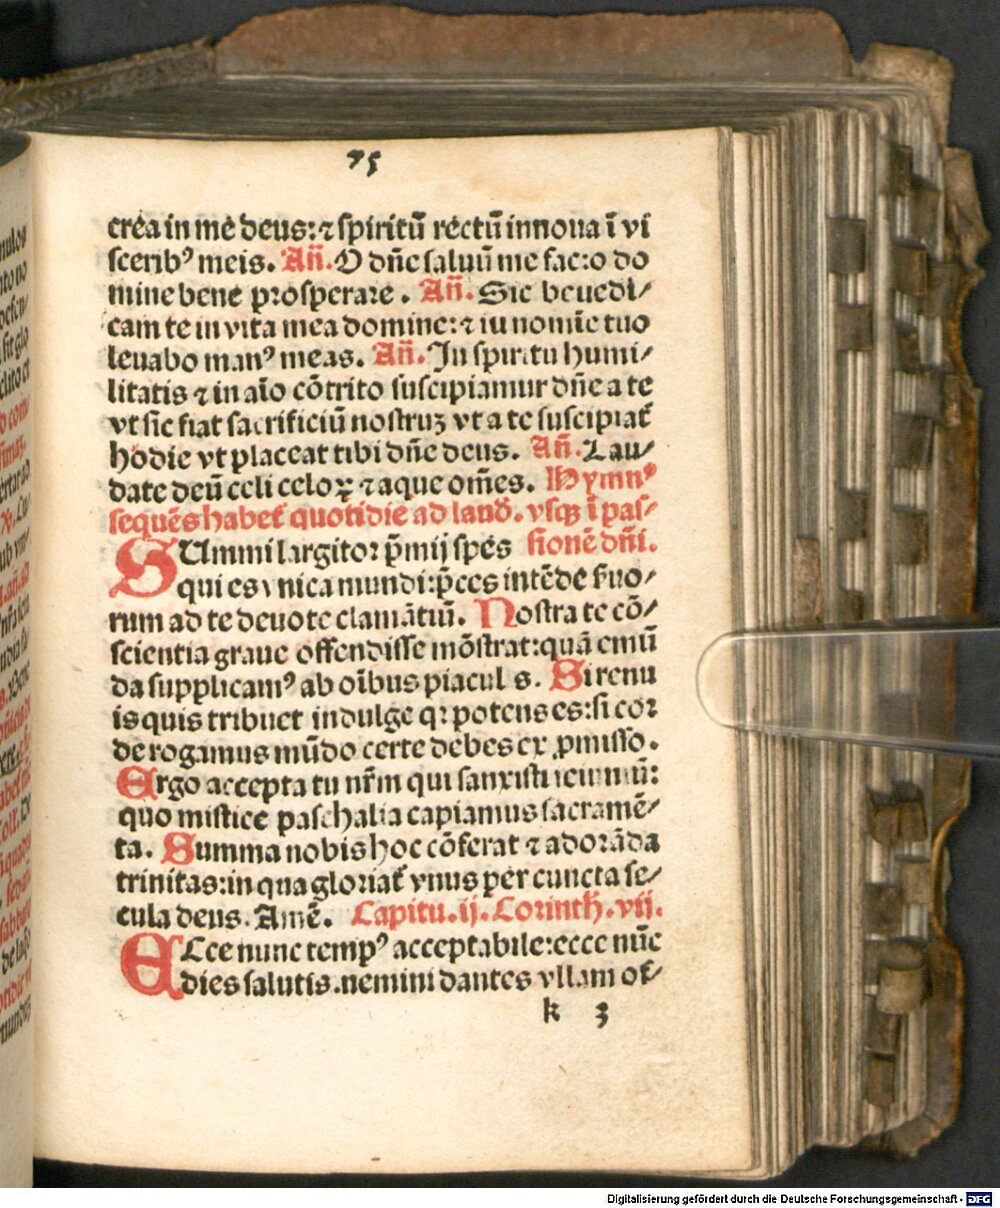 75
crea in me deus:⁊ spiritū rectū innoua ī vi
scerib⁹ meis. Añ. O dn̄e saluū me fac:o do
mine bene prosperare. Añ. Sic benedi/
cam te in vita mea domine:⁊ in nomīe tuo
leuabo man⁹ meas. Añ. In spiritu humi/
litatis ⁊ in aīo cōtrito suscipiamur dn̄e a te
vt sic fiat sacrificiū nostruꝫ vt a te suscipiat᷑
hodie vt placeat tibi dn̄e deus. Añ. Lau/
date deū celi celoꝝ ⁊ aque om̄es. Hymn⁹
sequēs habet᷑ quotidie ad laud̄. vsqꝫ ī pas/
SUmmi largitor p̄mij spes sionē dn̄i.
qui es vnica mundi:p̄ces intēde ẜuo/
rum ad te deuote clamātiū. Nostra te cō/
scientia graue offendisse mōstrat:quā emū
da supplicam⁹ ab oībus piacul s. Si renu
is quis tribuet indulge qr potens es:si cor
de rogamus mūdo certe debes ex ꝓmisso.
Ergo accepta tu nr̄m qui sanxisti ieiuniū:
quo mistice paschalia capiamus sacramē/
ta. Summa nobis hoc cōferat ⁊ adorāda
trinitas:in qua gloriat᷑ vnus per cuncta se/
cula deus. Amē. Capitu. ij. Corinth. vij.
ECce nunc temp⁹ acceptabile:ecce nūc
dies salutis. nemini dantes vllam of/
k 3
Digitalisierung gefördert durch die Deutsche Forschungsgemeinschaft - DFG